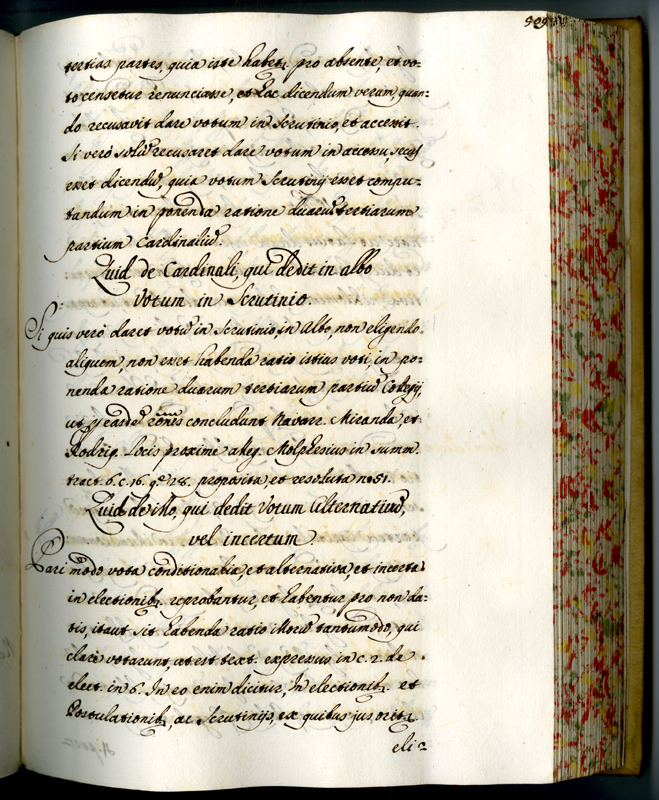 tertias partes, quia iste habetr. pro absente, et vo=
to censetur renunciasse, et hac dicendum verum, quan=
do recusavit dare votum in Scrutinio, et accessit.
Si verò solũ recusaret dare votum in accessu, secus
esset dicendũ, quia votum Scrutinij esset compu=
tandum in ponenda ratione duarũ tertiarum
partium Cardinaliũ.
Quid de Cardinali, qui dedit in albo
Votum in Scrutinio.
Si quis verò daret votũ in Scrutinio, in Albo, non eligendo
aliquem, non esset habenda ratio istius voti, in po=
nenda ratione duarum tertiarum partiũ Collegij,
ut easdẽ rõnes concludunt Navarr. Miranda, et
Rodrig. locis proximè alleg. Molphesius in summ.
tract. 6. c. 16. q.e 28. proposita, et resoluta nº 51.
Quid de illo, qui dedit Votum Alternativũ,
vel incertum.
Pari modo vota conditionalia, et alternativa, et incerta
in electionib. reprobantur, et habentur pro non da=
tis, itaut sit habenda ratio illorũ tantummodo, qui
clarè votarunt, ut est text. expressus in c. 2. de
elect. in 6. In eo enim dicitur, In electionib. et
Postulationib, ac Scrutinijs, ex quibus jus oritr.
eli=